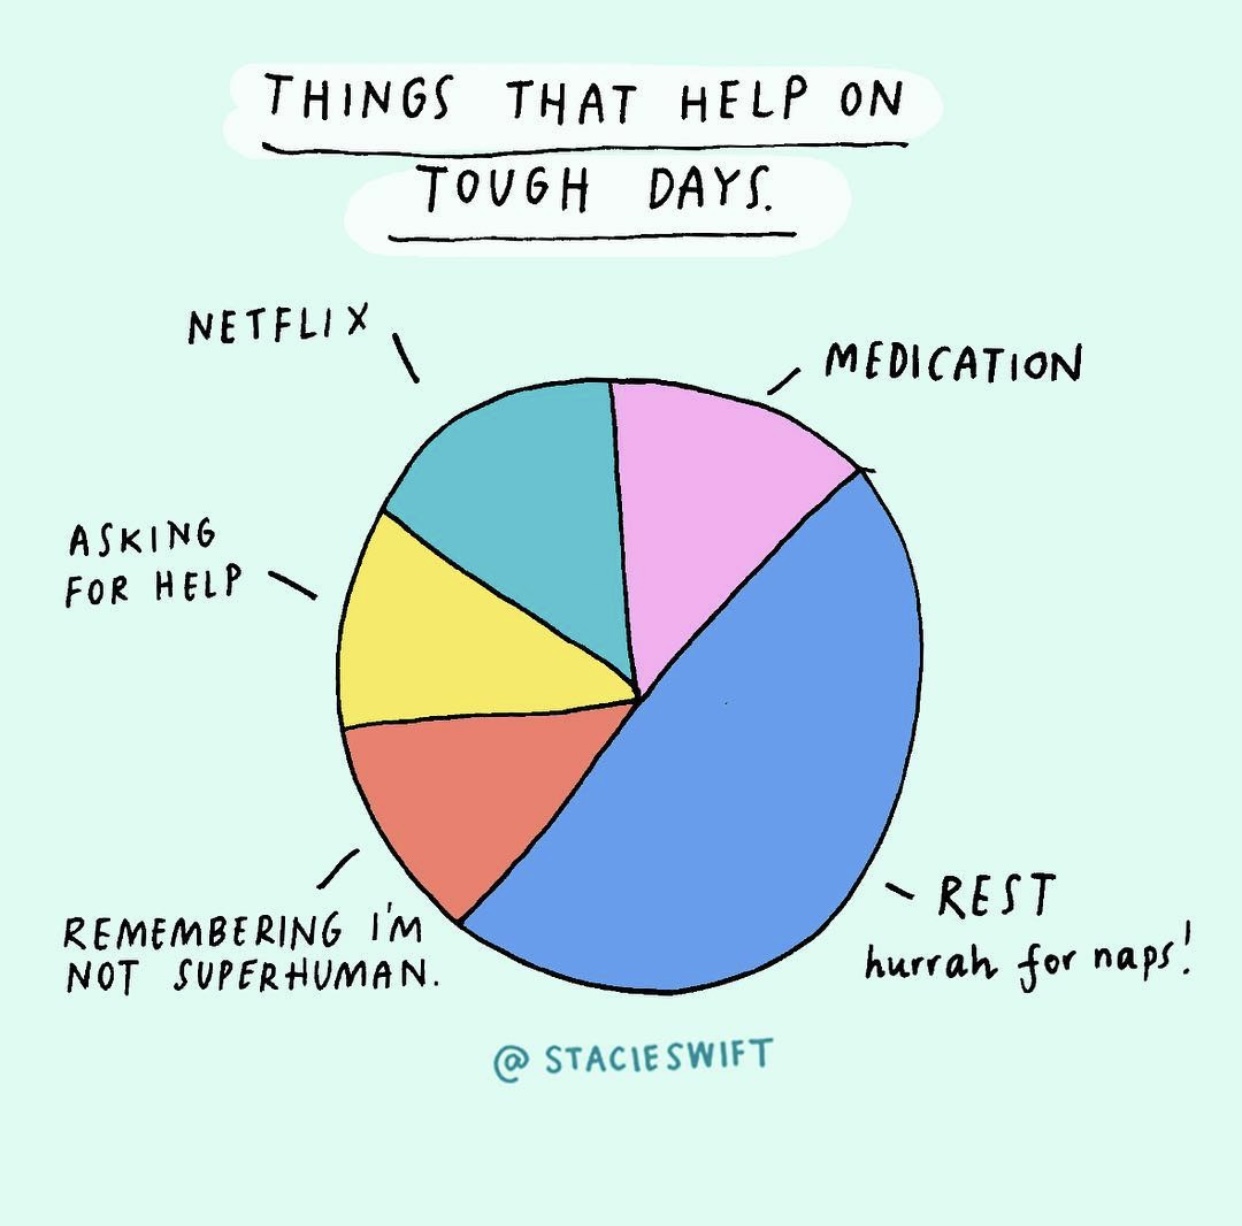 THINGS THAT HELP ON
TOUGH DAYS.
NETFLIX
MEDICATION
ASKING
FOR HELP
REMEMBERING I'M
NOT SUPERHUMAN.
REST
hurrah for naps!
@STACIESWIFT